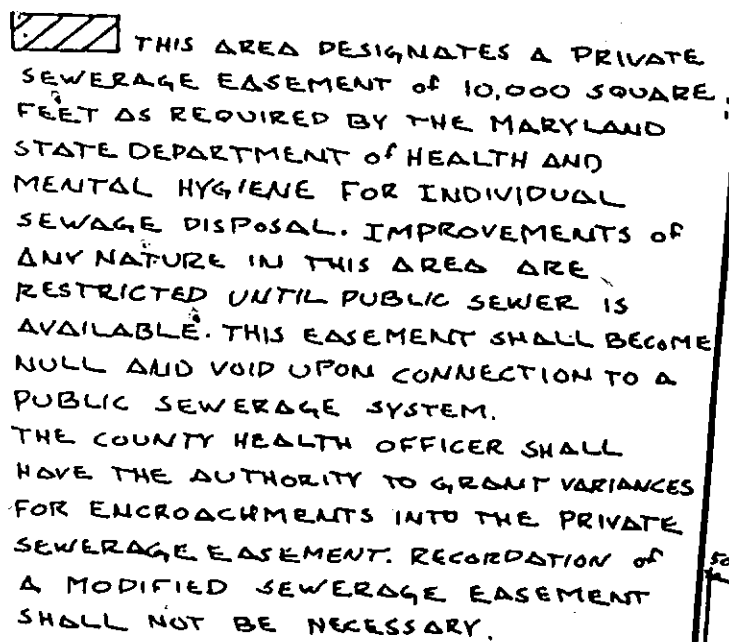 THIS AREA DESIGNATES A PRIVATE
SEWERAGE EASEMENT of 10,000 SQUARE
FEET AS REQUIRED BY THE MARYLAND
STATE DEPARTMENT of HEALTH AND
MENTAL HYGIENE FOR INDIVIDUAL
SEWAGE DISPOSAL. IMPROVEMENTS of
ANY NATURE IN THIS AREA ARE
RESTRICTED UNTIL PUBLIC SEWER IS
AVAILABLE. THIS EASEMENT SHALL BECOME
NULL AND VOID UPON CONNECTION TO A
PUBLIC SEWERAGE SYSTEM.
THE COUNTY HEALTH OFFICER SHALL
HAVE THE AUTHORITY TO GRANT VARIANCES
FOR ENCROACHMENTS INTO THE PRIVATE
SEWERAGE EASEMENT. RECORDATION of
A MODIFIED SEWERAGE EASEMENT
SHALL NOT BE NECESSARY.